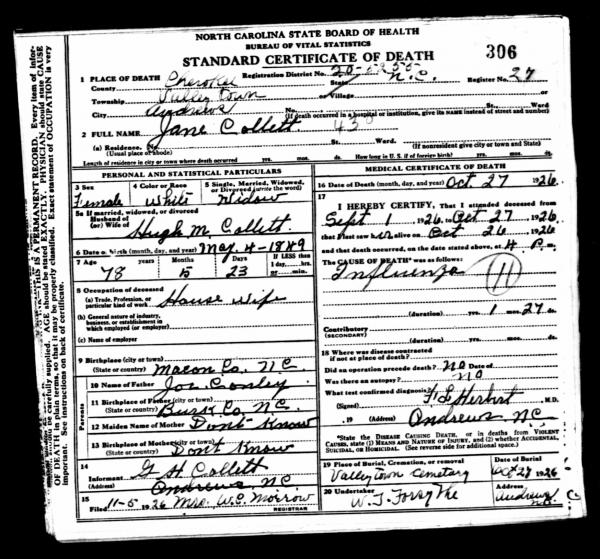 NORTH CAROLINA STATE BOARD OF HEALTH
BUREAU OF VITAL STATISTICS
STANDARD CERTIFICATE OF DEATH
306
1 PLACE OF DEATH Cherokee
Registration District No. 20-
County
State N.C. Register No. 27
Township Valley Town or Village
City Andrews No. St., Ward
(If death occurred in a hospital or institution, give its NAME instead of street and number)
2 FULL NAME Jane Collett
(a) Residence. No. St., Ward
(Usual place of abode) (If nonresident give city or town and State)
Length of residence in city or town where death occurred yrs. mos. ds. How long in U. S. if of foreign birth? yrs. mos. ds.
PERSONAL AND STATISTICAL PARTICULARS
3 Sex 4 Color or Race 5 Single, Married, Widowed, or Divorced (write the word)
Female White Widow
5a If married, widowed, or divorced
Husband of
(or) Wife of Hugh M Collett
6 Date of Birth (month, day, and year) May 4-1849
7 Age years Months Days If LESS than 1 day, hrs. or min.
78 5 23
8 Occupation of deceased
(a) Trade, Profession, or particular kind of work House Wife
(b) General nature of industry, business, or establishment in which employed (or employer)
(c) Name of employer
9 Birthplace (city or town)
(State or country) Macon Co. N.C.
Parents
10 Name of Father Joe Conley
11 Birthplace of Father (city or town)
(State or country) Burk Co, N.C.
12 Maiden Name of Mother Dont Know
13 Birthplace of Mother (city or town)
(State or country) Don't Know
14
Informant G H Collett
(Address) Andrews N.C.
15
Filed 11-5 1926 Mrs. W.E. Morrow
REGISTRAR
MEDICAL CERTIFICATE OF DEATH
16 Date of Death (month, day, and year) Oct 27 1926
17
I HEREBY CERTIFY, That I attended deceased from
Sept 1 1926 Oct 27 1926
that I last saw her alive on Oct 26 1926
and that death occurred, on the date stated above, at 4 P. m.
The CAUSE OF DEATH* was as follows:
Influenza 11
(duration) yrs. 1 mos. 27 ds.
Contributory
(SECONDARY)
(duration) yrs. mos. ds.
18 Where was disease contracted
if not at place of death?
Did an operation precede death? no Date of
Was there an autopsy? no
What test confirmed diagnosis?
(Signed) Herbert M.D.
, 19 (Address) Andrews NC
*State the DISEASE CAUSING DEATH, or in deaths from VIOLENT CAUSES, state (1) MEANS AND NATURE OF INJURY, and (2) whether ACCIDENTAL, SUICIDAL, or HOMICIDAL. (See reverse side for additional space.)
19 Place of Burial, Cremation, or removal Date of Burial
Valley Town Cemetary Oct 27 1926
20 Undertaker Address
W. T. Forsythe Andrews N.C.